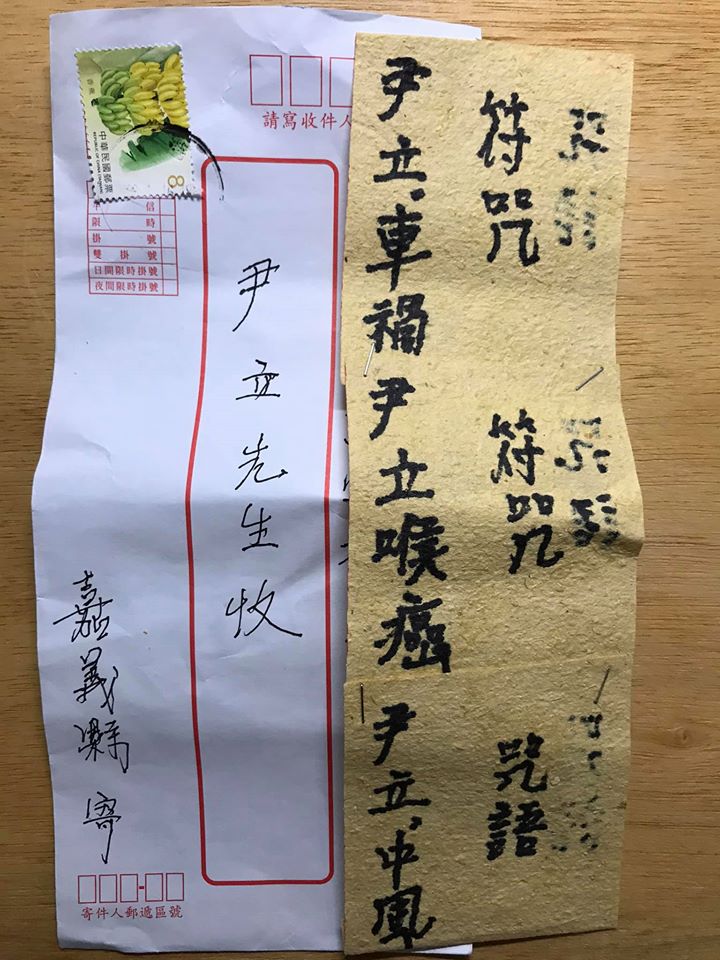 符咒
尹立、車禍
符咒
尹立喉癌
咒語
尹立、中風
請寫收件人
中華民國郵票
REPUBLIC OF CHINA (TAIWAN)
8
信
限時
掛號
雙掛號
日間限時掛號
夜間限時掛號
尹立先生收
嘉義縣 寄
寄件人郵遞區號